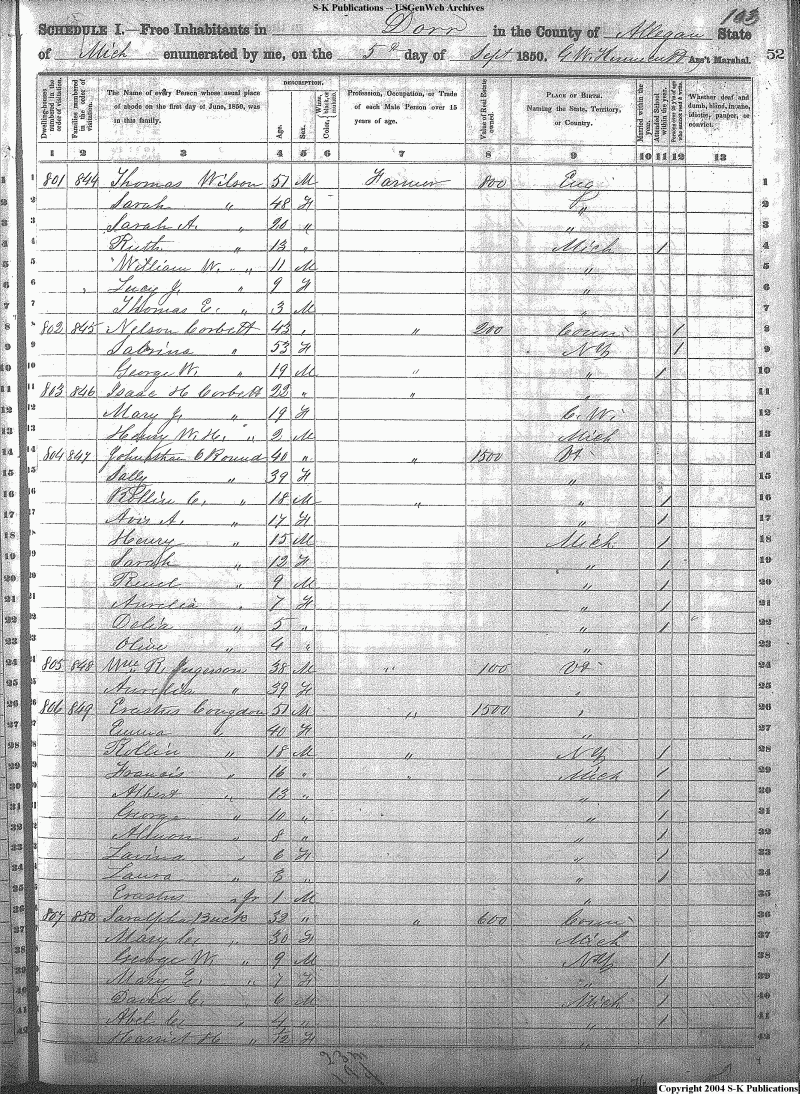 S-K Publications -- USGenWeb Archives
103
SCHEDULE I.—Free Inhabitants in Dorr in the County of Allegan State
of Mich enumerated by me, on the 5th day of Sept 1850. Ass't Marshal. 52
Dwelling-houses numbered in the order of visitation. Families numbered in the order of visitation. The Name of every Person whose usual place of abode on the first day of June, 1850, was in this family. DESCRIPTION. Age. Sex. Color, White, black, or mulatto. Profession, Occupation, or Trade of each Male Person over 15 years of age. Value of Real Estate owned. PLACE OF BIRTH. Naming the State, Territory, or Country. Married within the year. Attended School within the year. Persons over 20 y'rs of age who cannot read & write. Whether deaf and dumb, blind, insane, idiotic, pauper, or convict.
1 2 3 4 5 6 7 8 9 10 11 12 13
1 801 844 Thomas Wilson 51 M Farmer 800 Eng 1
2 Sarah " 48 F " 2
3 Sarah A. " 20 " " 3
4 Ruth " 13 " Mich / 4
5 William W. " 11 M " 5
6 Lucy J. " 9 F " 6
7 Thomas E. " 3 M " 7
8 802 845 Nelson Corbett 43 " " 200 Conn / 8
9 Sabrina " 53 F NY / 9
10 George W. " 19 M " " / 10
11 803 846 Isaac H Corbett 22 " " " 11
12 Mary J. " 19 F C.W. 12
13 Henry W. H. " 2 M Mich 13
14 804 847 Johnathan C Round 40 " " 1500 Vt 14
15 Sally " 39 F " 15
16 Rollin C. " 18 M " " / 16
17 Avis A. " 17 F " / 17
18 Henry " 15 M Mich / 18
19 Sarah " 12 F " / 19
20 Reuel " 9 M " / 20
21 Aurelia " 7 F " / 21
22 Delia " 5 " " / 22
23 Olive " 4 " " 23
24 805 848 Wm R. Jugerson 38 M " 100 Vt 24
25 Aurelia " 39 F " 25
26 806 849 Erastus Congdon 51 M " 1500 " 26
27 Emma " 40 F " 27
28 Rollin " 18 M " NY / 28
29 Francis " 16 " " Mich / 29
30 Albert " 13 " " / 30
31 George " 10 " " / 31
32 " 8 " " / 32
33 Lavina " 6 F " / 33
34 Laura " 3 " " / 34
35 Erastus " Jr 1 M " 35
36 807 850 Buck 32 " " 600 Conn 36
37 Mary " 30 F Mich 37
38 George W. " 9 M NY / 38
39 Mary E. " 7 F " / 39
40 David C. " 6 M Mich / 40
41 Abel " 4 " " / 41
42 Harriet H " 1/2 F " 42
23 m
19 f
Copyright 2004 S-K Publications